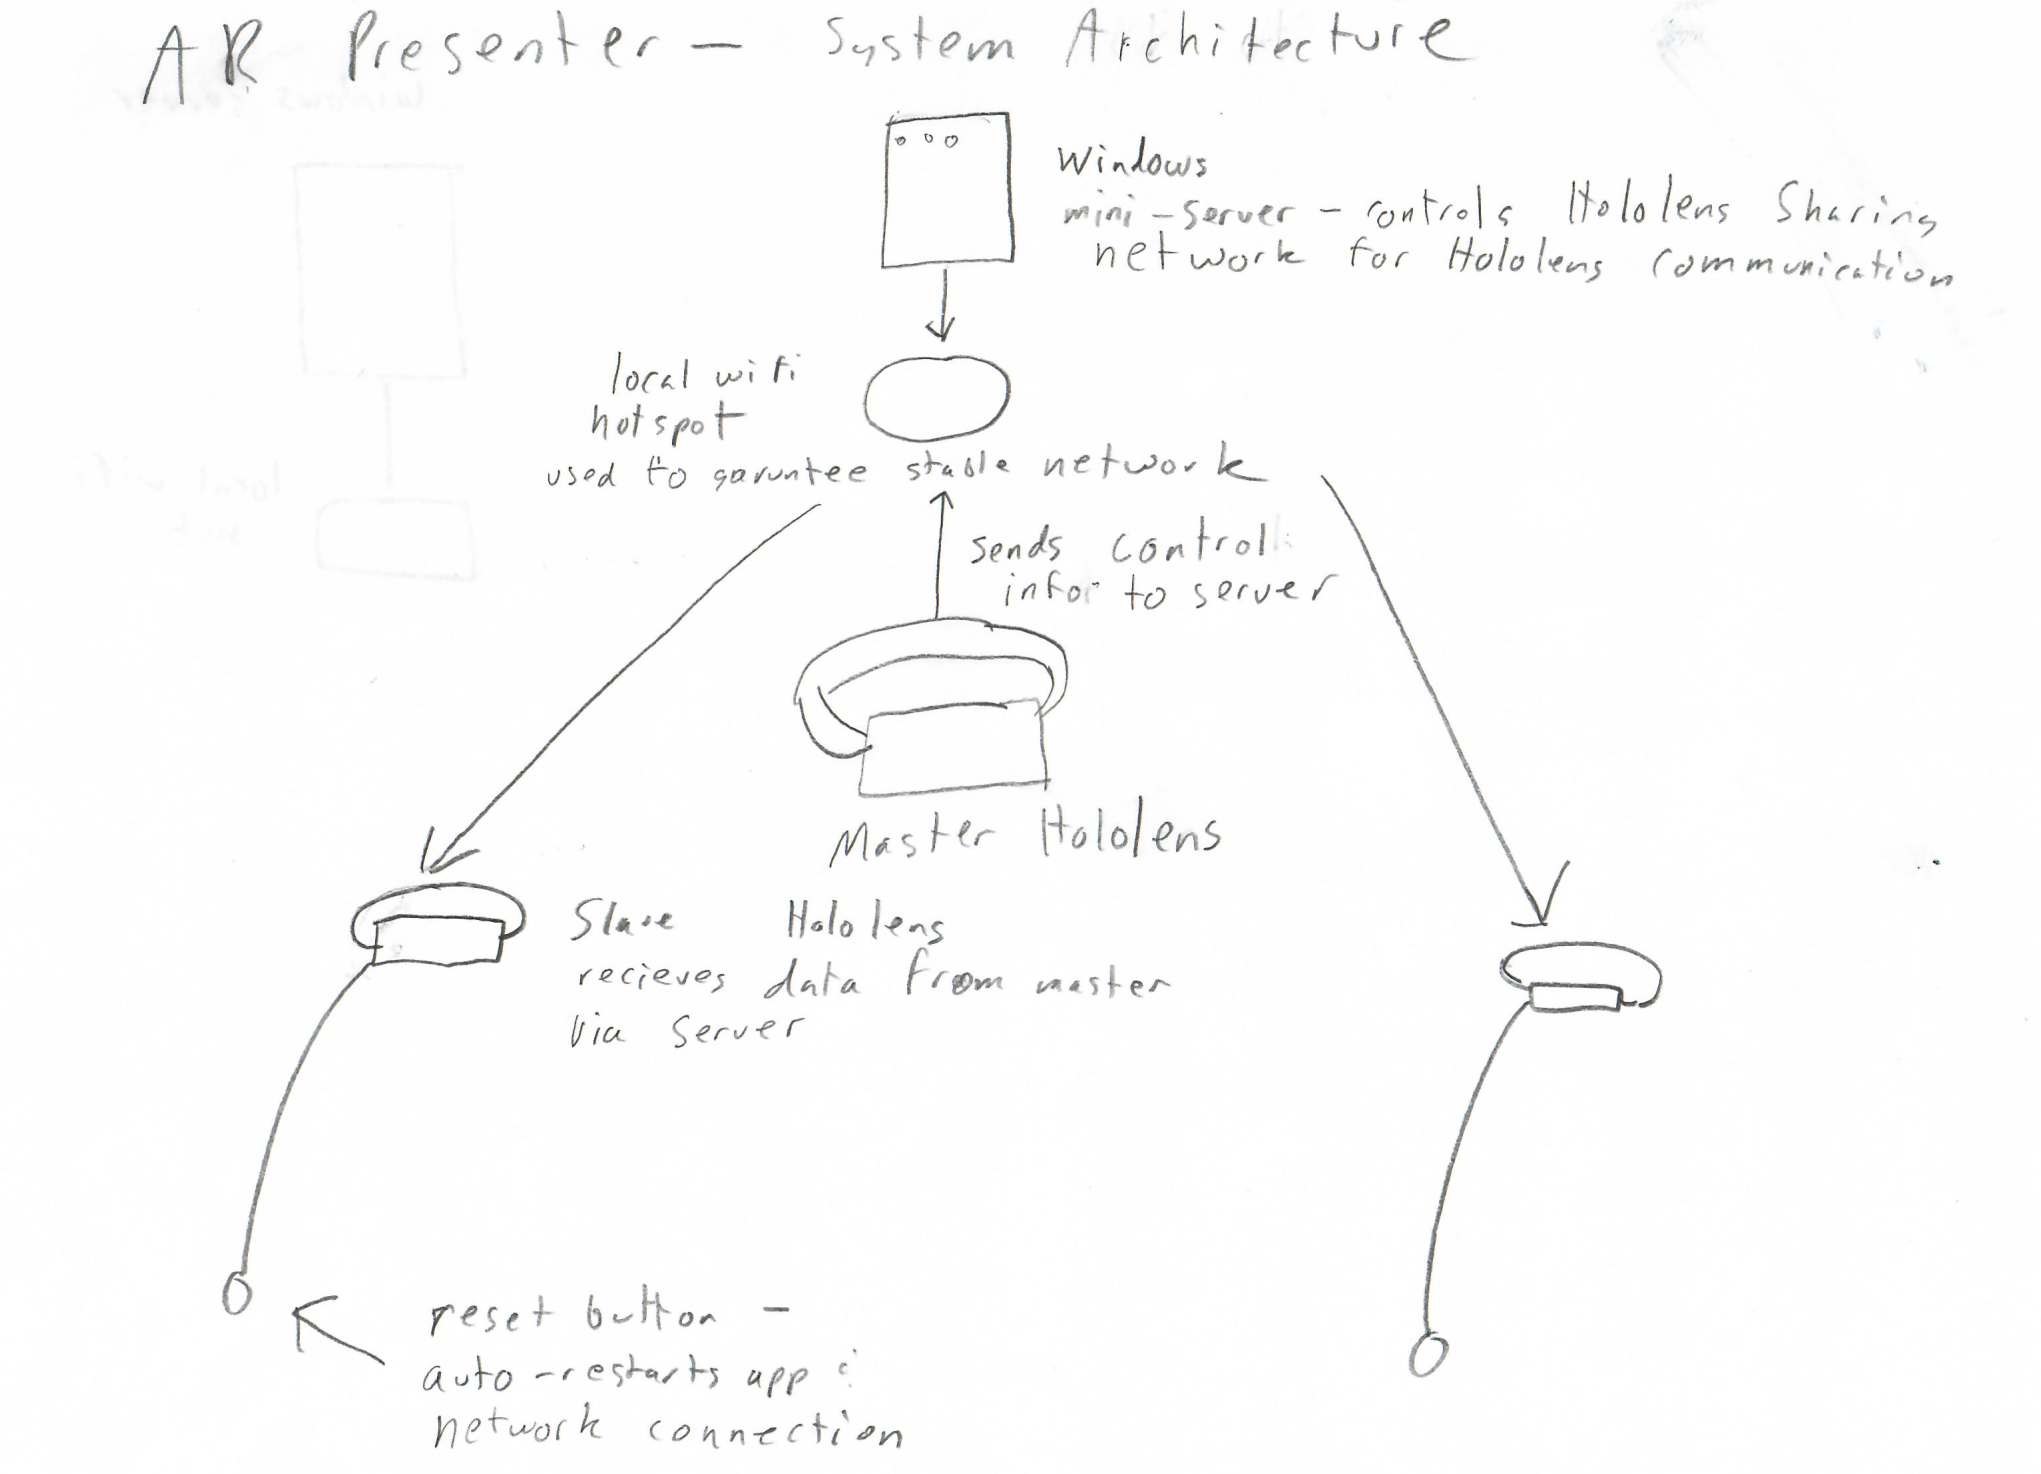 AR Presenter — System Architecture
Windows
mini-server - controls Hololens Sharing
network for Hololens communication
local wifi
hotspot
used to garuntee stable network
sends control
info to server
Master Hololens
Slave Hololens
recieves data from master
via server
reset button -
auto-restarts app &
network connection
windows server
local wifi
hub